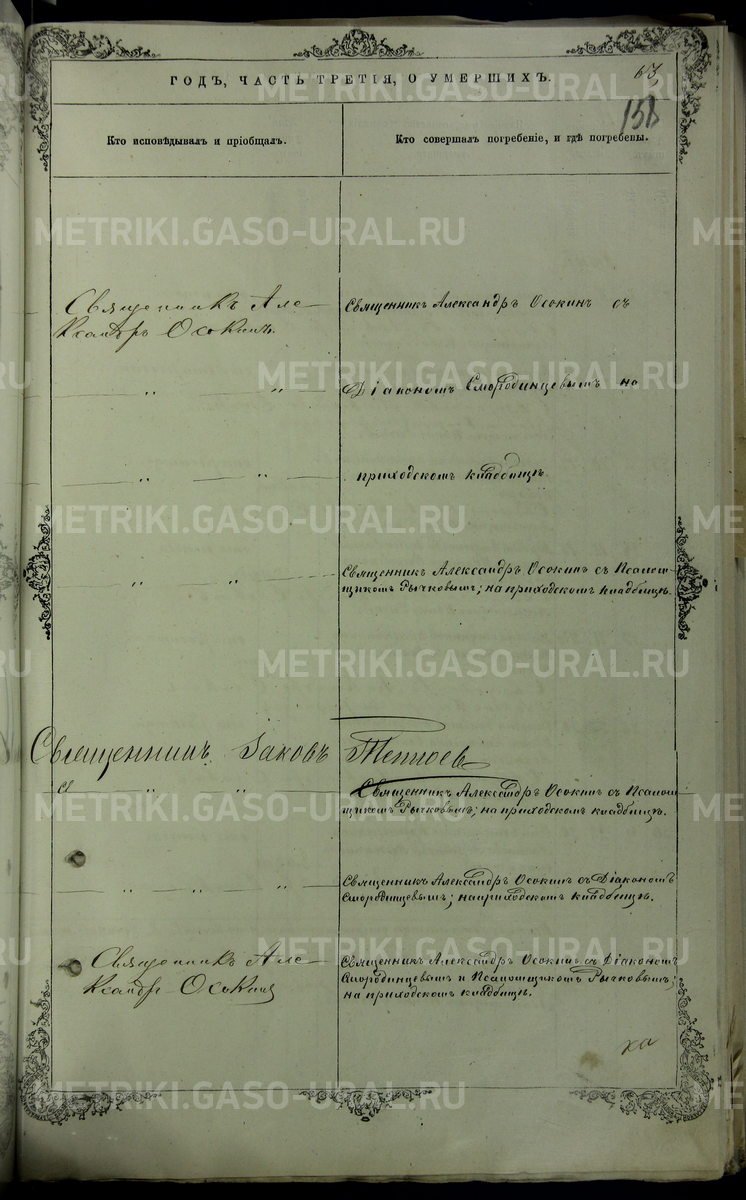 ГОДЪ, ЧАСТЬ ТРЕТІЯ, О УМЕРШИХЪ.
63
158
Кто исповѣдывалъ и пріобщалъ.
Кто совершалъ погребеніе, и гдѣ погребены.
Священникъ Але-
ксандръ Осокинъ.
Священникъ Александръ Осокинъ съ
Діакономъ Смородинцевымъ на
приходскомъ кладбищѣ
Священникъ Александръ Осокинъ съ Псалом-
щикомъ Рычковымъ; на приходскомъ кладбищѣ.
Священникъ Іаковъ
Священникъ Александръ Осокинъ съ Псалом
щикомъ Рычковымъ; на приходскомъ кладбищѣ.
Священникъ Александръ Осокинъ съ Діакономъ
Смородинцевымъ; на приходскомъ кладбищѣ.
Священникъ Але-
ксандръ Осокинъ
Священникъ Александръ Осокинъ съ Діакономъ
Смородинцевымъ и Псаломщикомъ Рычковымъ;
на приходскомъ кладбищѣ.
ка
METRIKI.GASO-URAL.RU